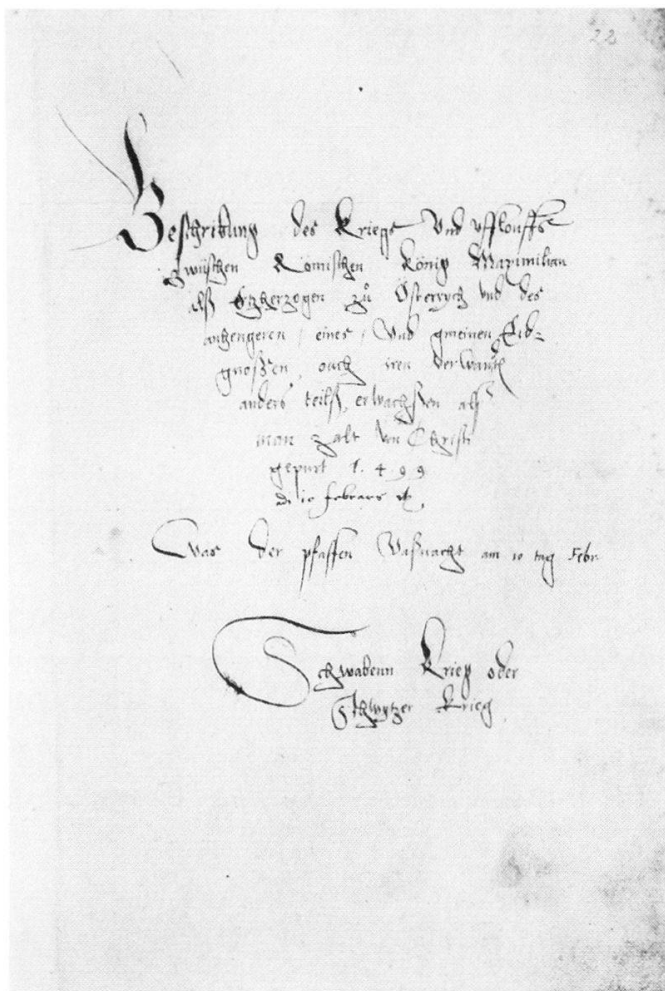 28
Beschribung des Kriegs Vnd vfflouffs
zwüschen Römischen König Maximilian
alß Ertzherzogen zů Österrych vnd des
anhengeren, eines, Vnd gmeinen Eid-
gnoßen, ouch iren verwanth
anders teilß, erwachsen alß
man zalt von Christi
gepurt 1.4 9 9
10 februarii
Was der pfaffen Vaßnacht am 10 tag Febr.
Schwabenn Krieg oder
Schwytzer Krieg